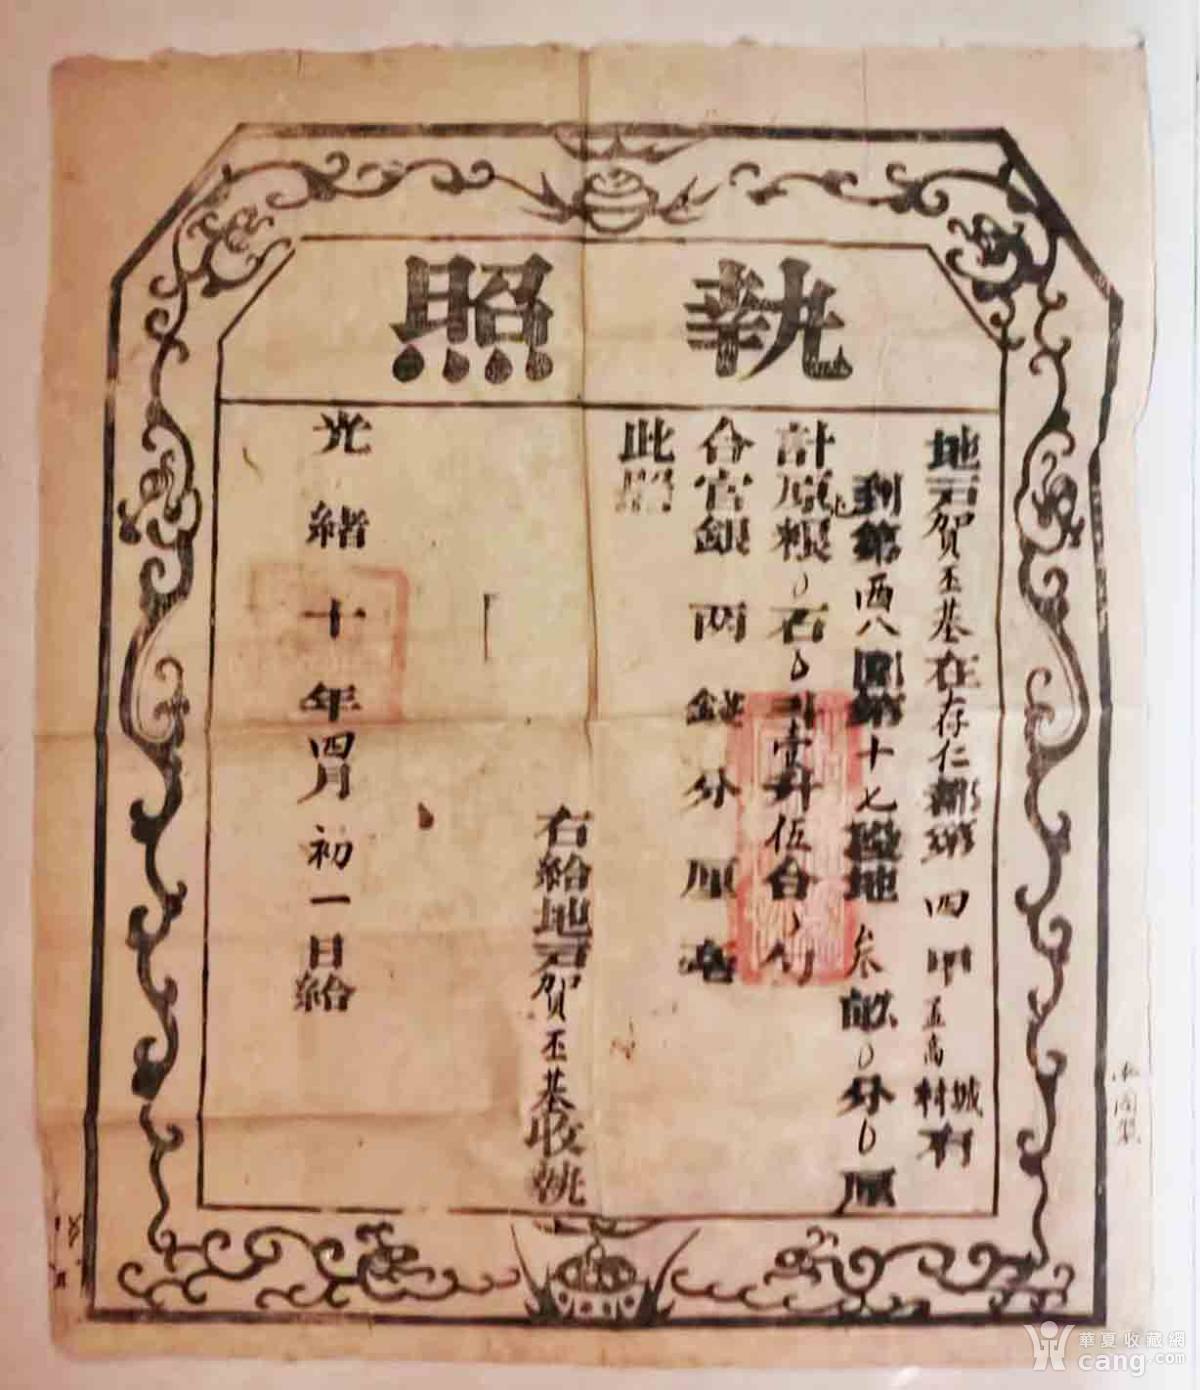 執照
地名賀丕基在存仁都第四甲五高城村有
到第酉八圖第十七段地叁畝〇分〇厘
計原糧〇石〇斗壹升伍合〇勺
合官銀兩錢分厘毫
此照
右給地名賀丕基收執
光緒十年四月初一日給
華夏收藏網
cang.com